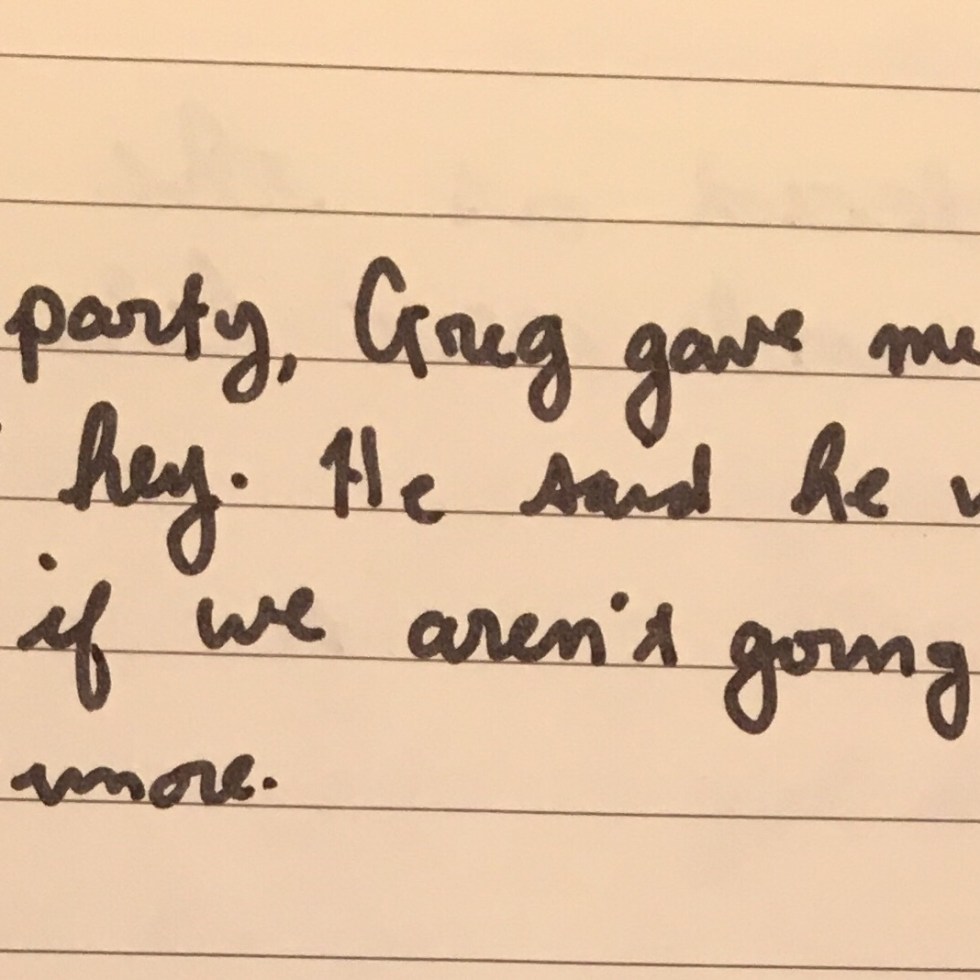 party, Greg gave me
hey. He said he
if we aren't going
more.